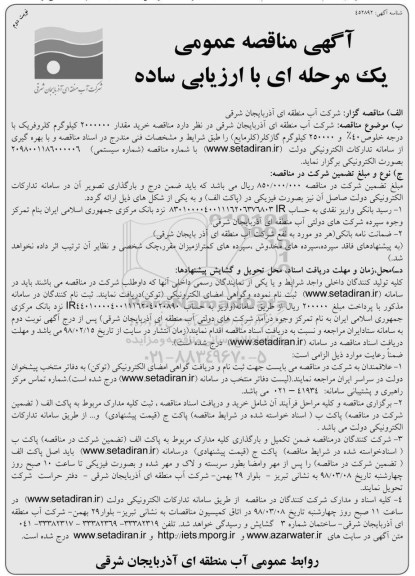 شناسه آگهی: ۴۵۲۸۹۲
نوبت دوم
آگهی مناقصه عمومی
یک مرحله ای با ارزیابی ساده
شرکت آب منطقه ای آذربایجان شرقی
الف) مناقصه گزار: شرکت آب منطقه ای آذربایجان شرقی
ب) موضوع مناقصه: شرکت آب منطقه ای آذربایجان شرقی در نظر دارد مناقصه خرید مقدار ۲۰۰۰۰۰۰ کیلوگرم کلروفریک با
درجه خلوص ۴۰٪ و ۲۵۰۰۰۰ کیلوگرم گازکلر(کلرمایع) را طبق شرایط و مشخصات فنی مندرج در اسناد مناقصه و با بهره گیری
از سامانه تدارکات الکترونیکی دولت (www.setadiran.ir) با شماره مناقصه (شماره سیستمی) ۲۰۹۸۰۰۱۱۸۶۰۰۰۰۰۶
بصورت الکترونیکی برگزار نماید.
ج) نوع و مبلغ تضمین شرکت در مناقصه:
مبلغ تضمین شرکت در مناقصه ۸۵۰/۰۰۰/۰۰۰ ریال می باشد که باید ضمن درج و بارگذاری تصویر آن در سامانه تدارکات
الکترونیکی دولت صاصل آن نیز بصورت فیزیکی در (پاکت الف) و به یکی از شکل های ذیل ارائه گردد.
۱– رسید بانکی واریز نقدی به حساب IR نزد بانک مرکزی جمهوری اسلامی ایران بنام تمرکز
وجوه سپرده شرکت های دولتی آب منطقه ای آذربایجان شرقی
۲– ضمانت نامه بانکی(هر دو مورد به نفع شرکت آب منطقه ای آذر بایجان شرقی).
(به پیشنهادهای فاقد سپرده،سپرده های مخدوش ،سپرده های کمترازمیزان مقرر،چک شخصی و نظایر آن ترتیب اثر داده نخواهد
شد.)
د)محل،زمان و مهلت دریافت اسناد، محل تحویل و گشایش پیشنهادها:
کلیه تولید کنندگان داخلی واجد شرایط و یا یکی از نمایندگان رسمی داخلی آنها که داوطلب شرکت در مناقصه می باشند باید در
سامانه (www.setadiran.ir) ثبت نام نموده وگواهی امضای الکترونیکی (توکن)دریافت نمایند. ثبت نام کنندگان در سامانه
مذکور با پرداخت مبلغ ۲۰۰۰۰۰ ریال از طریق سامانه(واریز به حساب نزد بانک مرکزی
جمهوری اسلامی ایران به نام تمرکز وجوه درآمد شرکت های دولتی آب منطقه ای آذربایجان شرقی) پس از درج آگهی نوبت دوم
به سامانه ستادایران مراجعه و نسبت به دریافت اسناد مناقصه اقدام نمایند(زمان انتشار در سایت از تاریخ ۹۸/۰۲/۱۵ می باشد و مهلت
دریافت اسناد مناقصه در سامانه (www.setadiran.ir) درج شده است).
ضمناً رعایت موارد ذیل الزامی است:
۱– علاقمندان به شرکت در مناقصه می بایست جهت ثبت نام و دریافت گواهی امضای الکترونیکی (توکن) به دفاتر منتخب پیشخوان
دولت در سراسر ایران مراجعه نمایند.(لیست دفاتر منتخب در سامانه (www.setadiran.ir) درج شده است).شماره تماس مرکز
راهبری و پشتیبانی سامانه: ۴۱۹۳۴ – ۰۲۱ می باشد.
۲– برگزاری مناقصه و کلیه مراحل فرآیند آن شامل خرید و دریافت اسناد مناقصه ، ثبت کلیه مدارک مربوط به پاکت الف ( تضمین
شرکت در مناقصه) پاکت ب ( اسناد خواسته شده در شرایط مناقصه) پاکت ج (قیمت پیشنهادی) و... از طریق سامانه تدارکات
الکترونیکی دولت می باشد.
۳– شرکت کنندگان درمناقصه ضمن تکمیل و بارگذاری کلیه مدارک مربوط به پاکت الف (تضمین شرکت در مناقصه) پاکت ب
( اسنادخواسته شده در شرایط مناقصه) پاکت ج (قیمت پیشنهادی) درسامانه (www.setadiran.ir) باید اصل پاکت الف
( تضمین شرکت در مناقصه) را پس از مهر وامضا بطور سربسته و لاک و مهر شده و بصورت فیزیکی تا ساعت ۱۰ صبح روز
چهارشنبه تاریخ ۹۸/۰۳/۰۸ به نشانی تبریز - بلوار ۲۹ بهمن- شرکت آب منطقه ای آذربایجان شرقی - دفتر حراست شرکت
تحویل نمایند.
۴– کلیه اسناد و مدارک شرکت کنندگان در مناقصه از طریق سامانه تدارکات الکترونیکی دولت (www.setadiran.ir) در
ساعت ۱۱ صبح روز چهارشنبه تاریخ ۹۸/۰۳/۰۸ در اتاق کمیسیون مناقصات به نشانی تبریز- بلوار۲۹ بهمن- شرکت آب منطقه
ای آذربایجان شرقی- ساختمان شماره ۳ گشایش و رسیدگی خواهد شد. تلفن ۳۳۳۸۲۳۱۹- ۳۳۳۸۲۳۶۹ - ۳۳۳۸۲۳۱۷- ۰۴۱
متن آگهی در سایت های www.azarwater.ir و http://iets.mporg.ir و www.setadiran.ir درج شده است.
روابط عمومی آب منطقه ای آذربایجان شرقی
۰۲۱-۸۸۳۴۹۶۷۰-۵